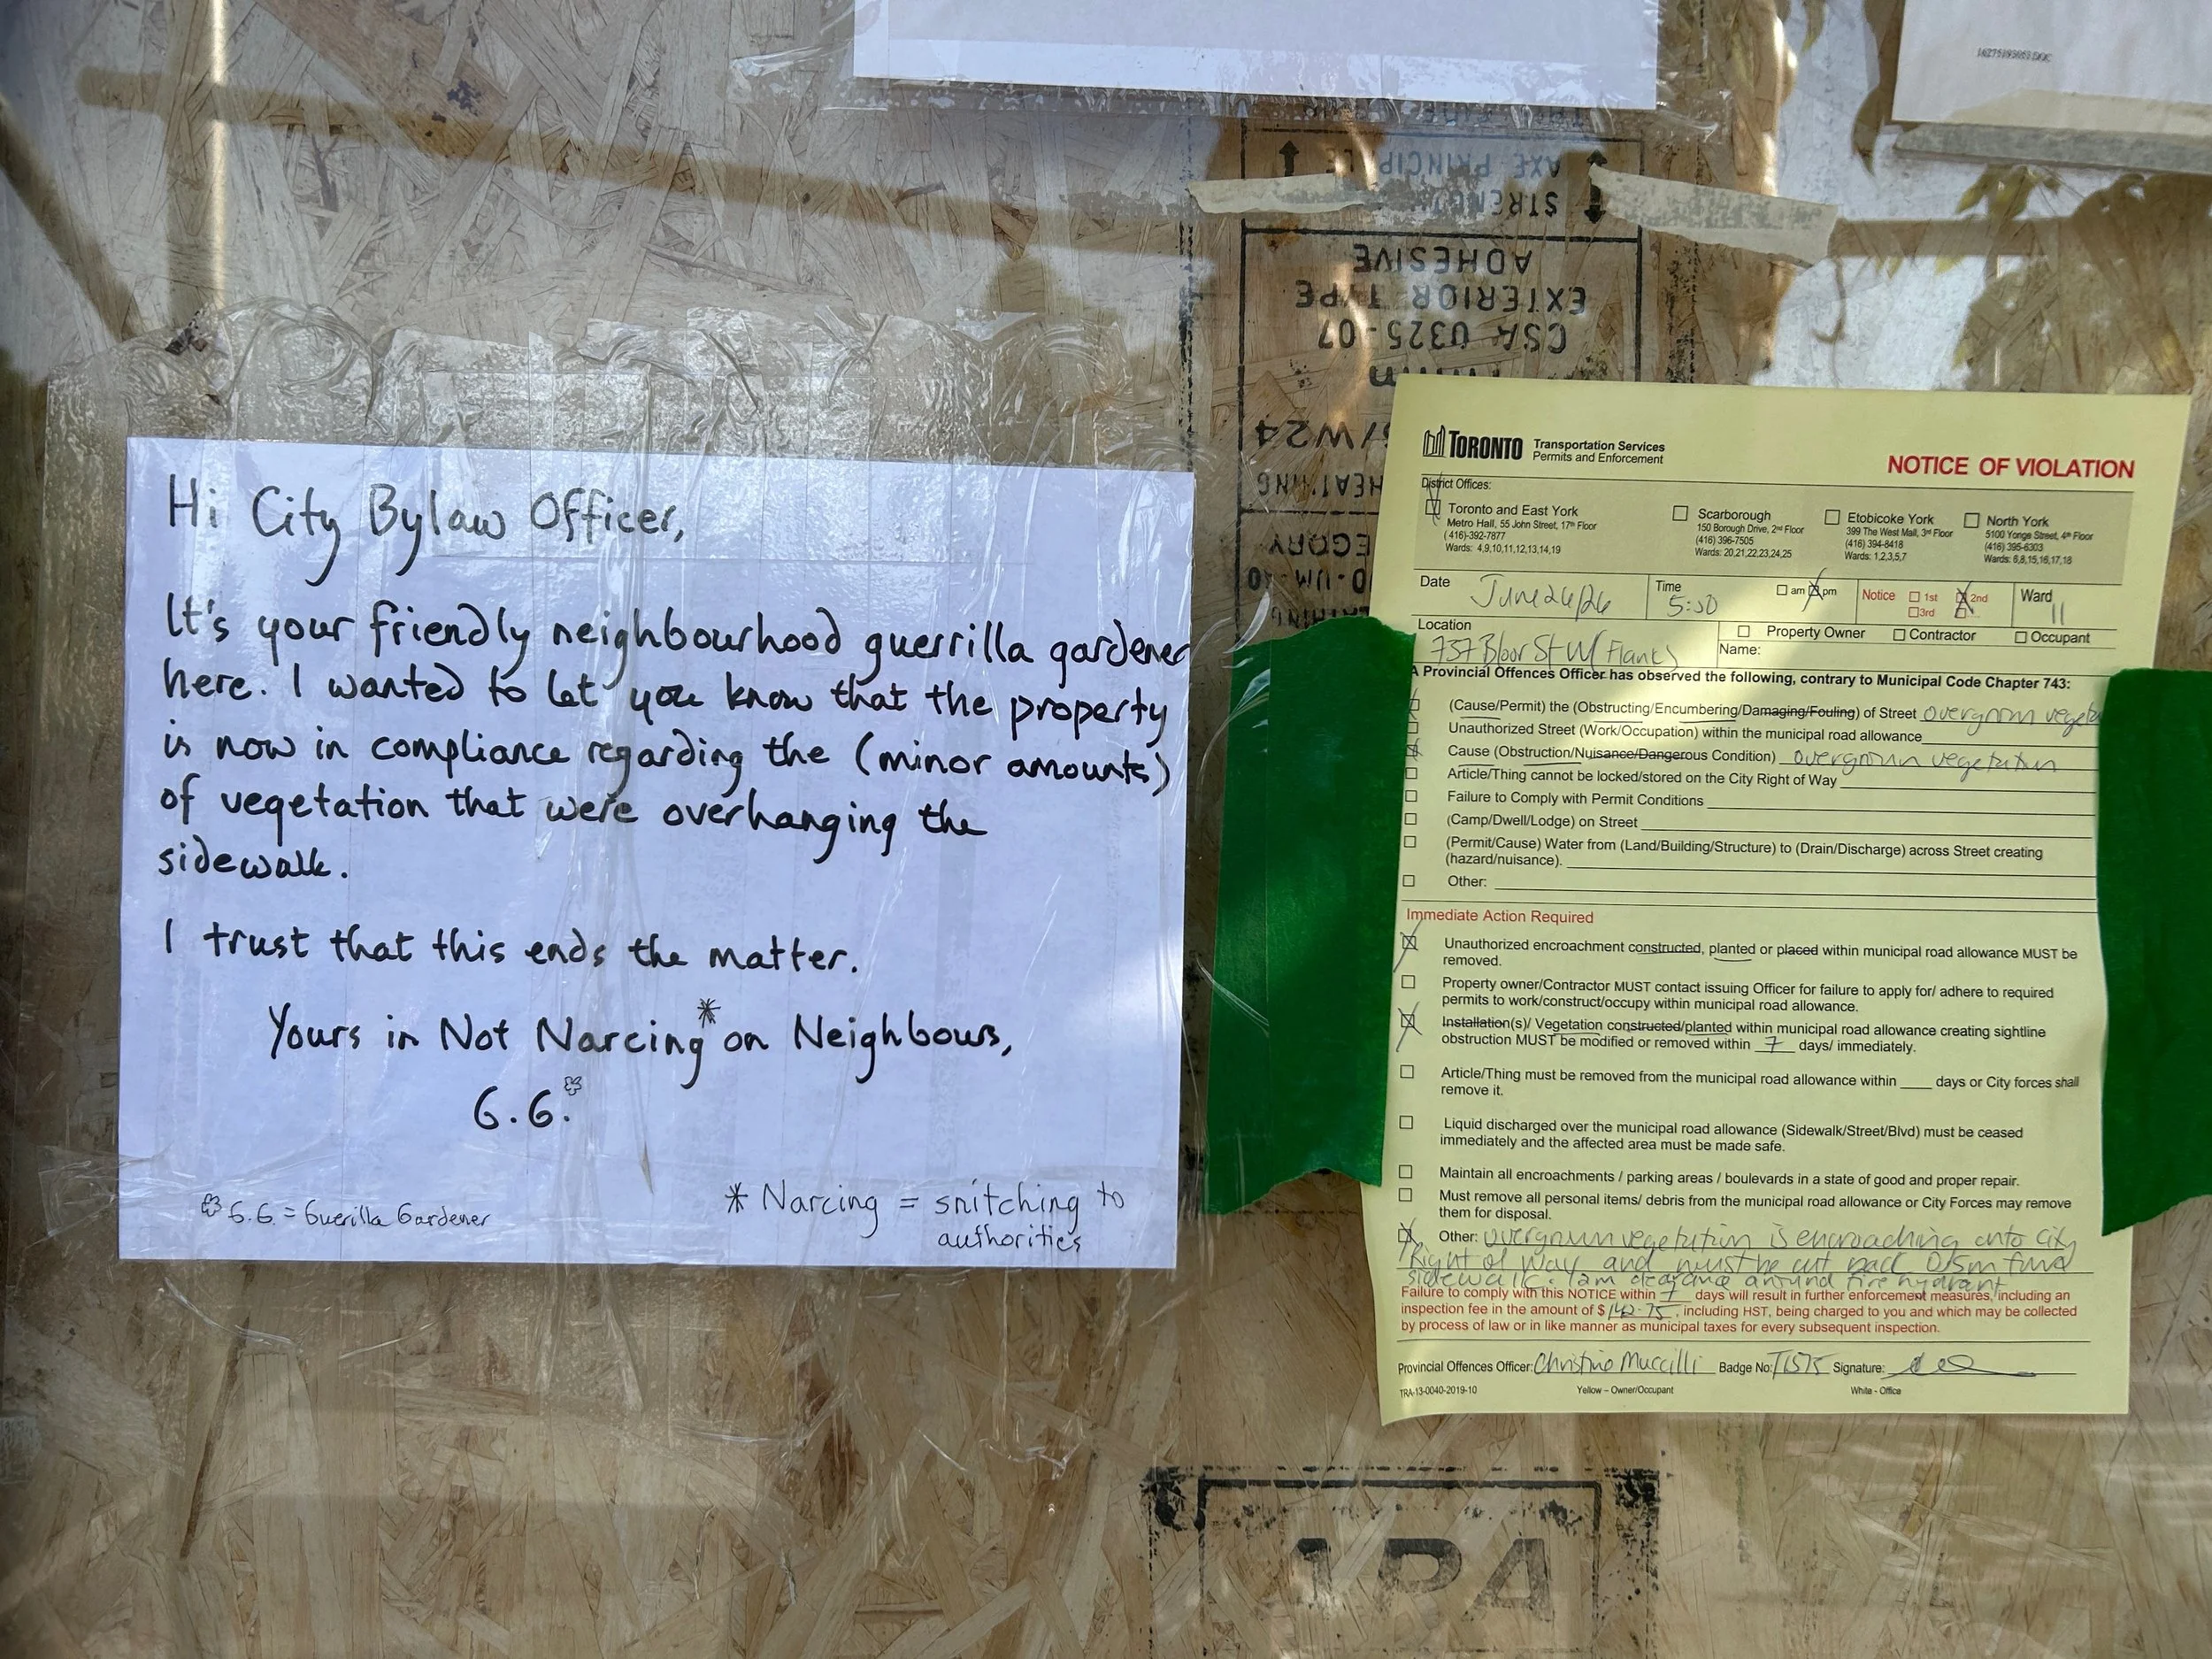 16275193053.DOC
AXE PRINCIPLE
STRENGTH
ADHESIVE
EXTERIOR TYPE
CSA O325-07
/W24
Hi City Bylaw Officer,
It's your friendly neighbourhood guerrilla gardener
here. I wanted to let you know that the property
is now in compliance regarding the (minor amounts)
of vegetation that were overhanging the
sidewalk.
I trust that this ends the matter.
Yours in Not Narcing* on Neighbours,
G.G.
G.G. = Guerilla Gardener
* Narcing = snitching to
authorities
TORONTO Transportation Services
Permits and Enforcement
NOTICE OF VIOLATION
District Offices:
Toronto and East York
Metro Hall, 55 John Street, 17th Floor
( 416)-392-7877
Wards: 4,9,10,11,12,13,14,19
Scarborough
150 Borough Drive, 2nd Floor
(416) 396-7505
Wards: 20,21,22,23,24,25
Etobicoke York
399 The West Mall, 3rd Floor
(416) 394-8418
Wards: 1,2,3,5,7
North York
5100 Yonge Street, 4th Floor
(416) 395-6303
Wards: 6,8,15,16,17,18
Date June 26/26 Time 5:30 am pm Notice 1st 2nd 3rd Ward 11
Location 737 Bloor St W (Flank)
Property Owner Contractor Occupant
Name:
A Provincial Offences Officer has observed the following, contrary to Municipal Code Chapter 743:
(Cause/Permit) the (Obstructing/Encumbering/Damaging/Fouling) of Street overgrown vegeta
Unauthorized Street (Work/Occupation) within the municipal road allowance
Cause (Obstruction/Nuisance/Dangerous Condition) overgrown vegetation
Article/Thing cannot be locked/stored on the City Right of Way
Failure to Comply with Permit Conditions
(Camp/Dwell/Lodge) on Street
(Permit/Cause) Water from (Land/Building/Structure) to (Drain/Discharge) across Street creating
(hazard/nuisance).
Other:
Immediate Action Required
Unauthorized encroachment constructed, planted or placed within municipal road allowance MUST be
removed.
Property owner/Contractor MUST contact issuing Officer for failure to apply for/ adhere to required
permits to work/construct/occupy within municipal road allowance.
Installation(s)/ Vegetation constructed/planted within municipal road allowance creating sightline
obstruction MUST be modified or removed within 7 days/ immediately.
Article/Thing must be removed from the municipal road allowance within ____ days or City forces shall
remove it.
Liquid discharged over the municipal road allowance (Sidewalk/Street/Blvd) must be ceased
immediately and the affected area must be made safe.
Maintain all encroachments / parking areas / boulevards in a state of good and proper repair.
Must remove all personal items/ debris from the municipal road allowance or City Forces may remove
them for disposal.
Other: overgrown vegetation is encroaching onto City
Right of Way and must be cut back 0.5m from
sidewalk. 1.2m clearance around fire hydrant
Failure to comply with this NOTICE within 7 days will result in further enforcement measures, including an
inspection fee in the amount of $ 142.75, including HST, being charged to you and which may be collected
by process of law or in like manner as municipal taxes for every subsequent inspection.
Provincial Offences Officer: Christine Muccilli Badge No: T1575 Signature:
TRA-13-0040-2019-10 Yellow – Owner/Occupant White - Office